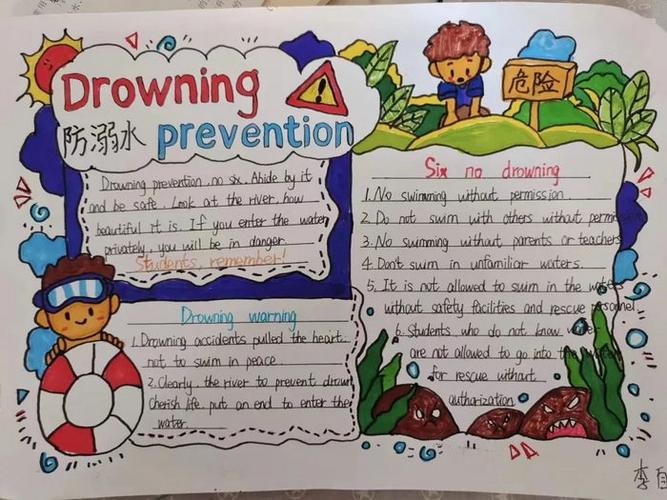 Drowning
防溺水 prevention
危险
Drowning prevention, no six. Abide by it
and be safe. Look at the river, how
beautiful it is. If you enter the water
privately, you will be in danger.
Students, remember!
Drowning warning
1. Drowning accidents pulled the heart,
not to swim in peace.
2. Clearly, the river to prevent drown
Cherish life, put an end to enter the
water.
Six no drowning
1. No swimming without permission.
2. Do not swim with others without
3. No swimming without parents or teachers
4. Don't swim in unfamiliar waters.
5. It is not allowed to swim in the waters
without safety facilities and rescue personnel
6. Students who do not know water
are not allowed to go into the water
for rescue without
authorization
李